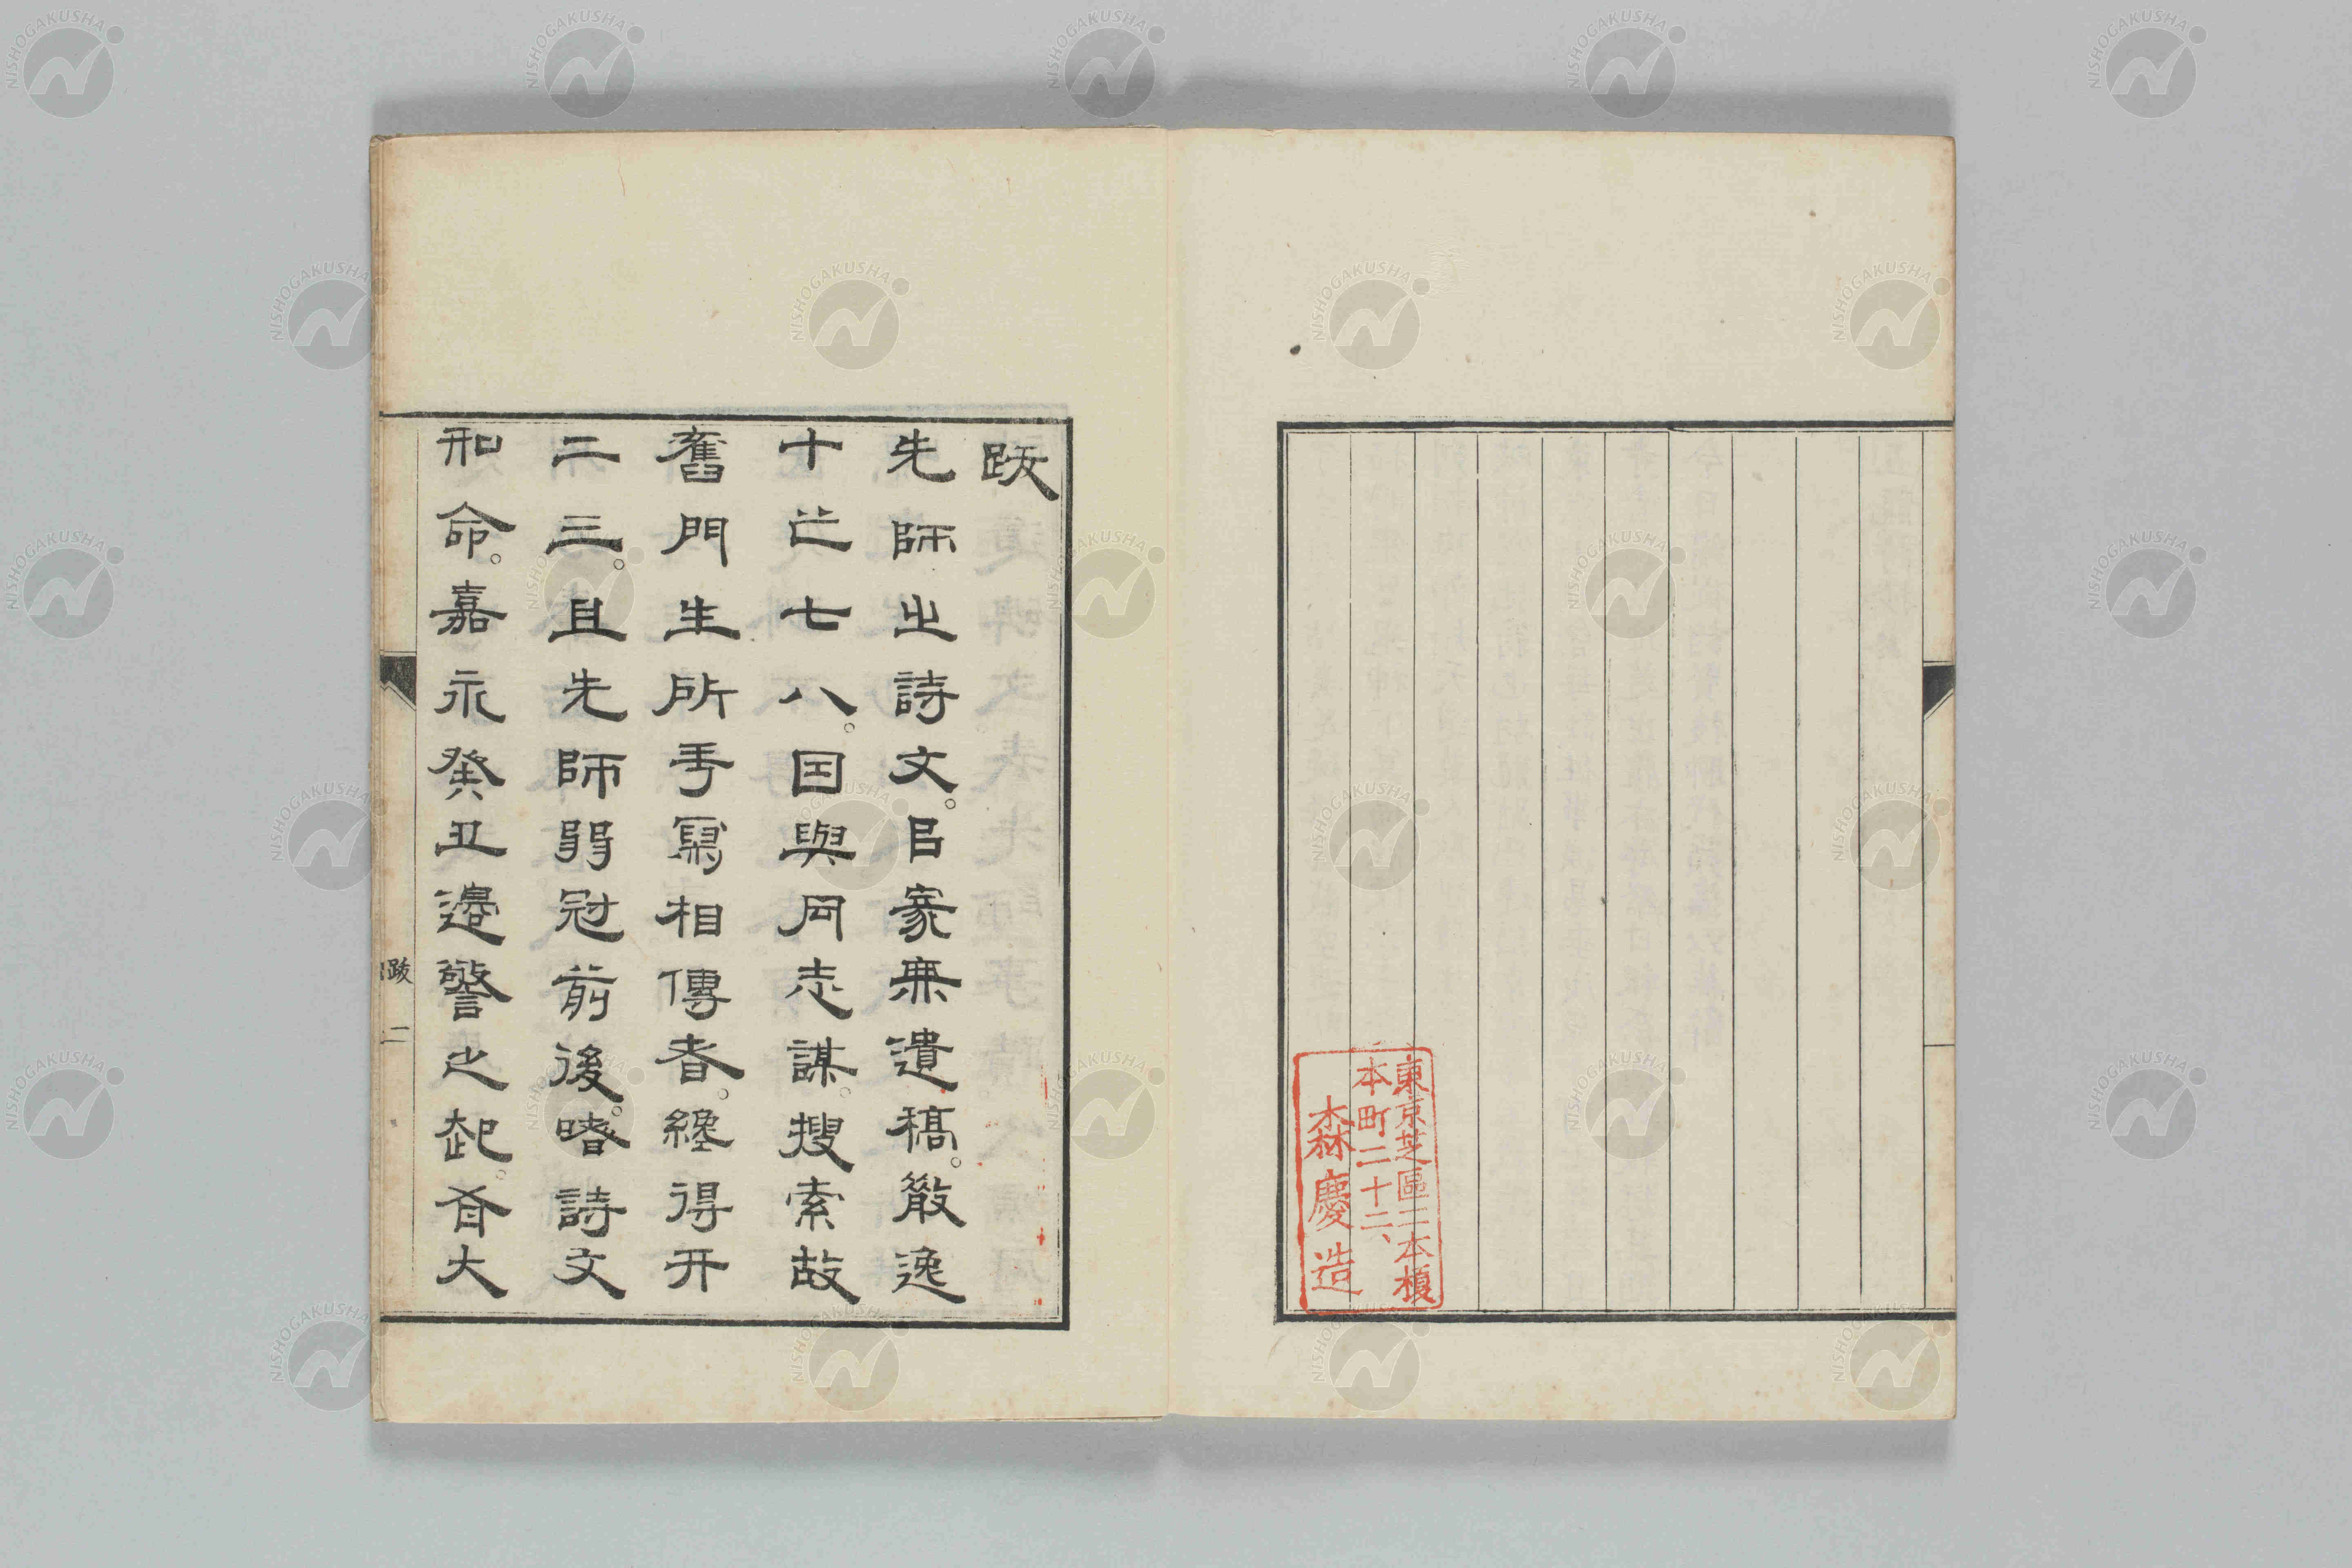 東京芝區二本榎
本町二十二、
森慶造
跋
先師之詩文。㠯家無遺稿。散逸
十亡七八。因與同志謀。搜索故
舊門生所手寫相傳者。纔得什
二三。且先師弱冠前後。嗜詩文
和命。嘉永癸丑邊警之起。省大
跋
二
NISHOGAKUSHA